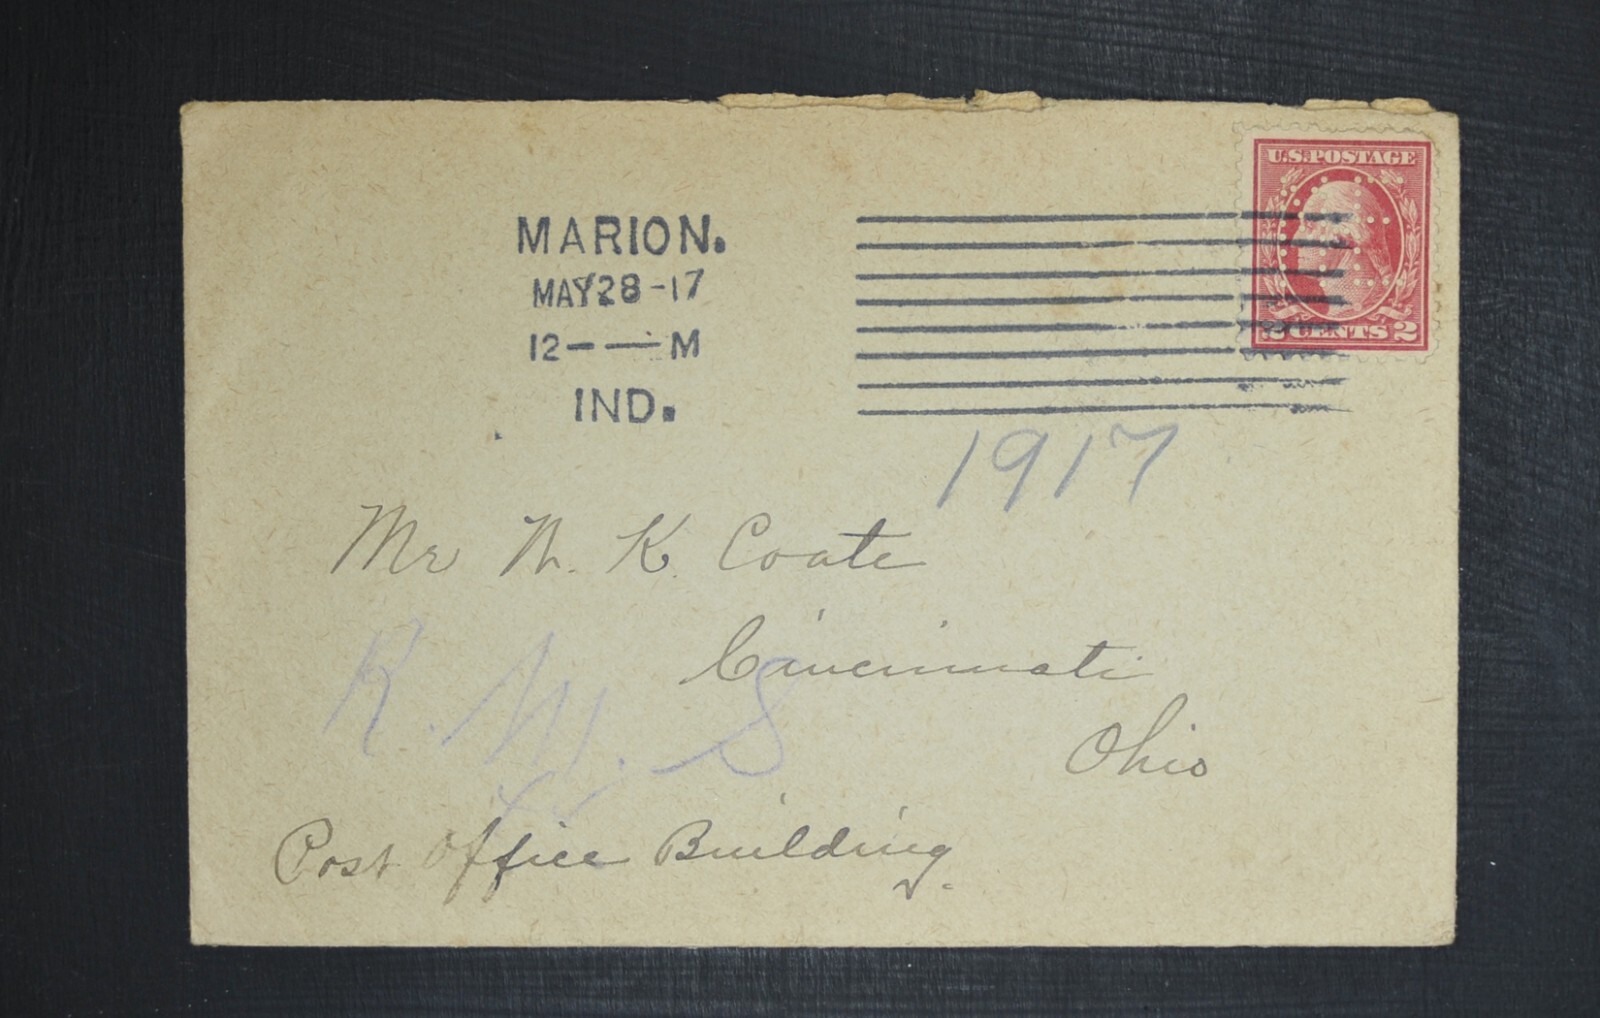 U.S.POSTAGE
2 CENTS 2
MARION.
MAY 28 -17
12 — — M
IND.
1917
Mr N. K. Coate
Cincinnati
Ohio
R. M. S
Post Office Building.